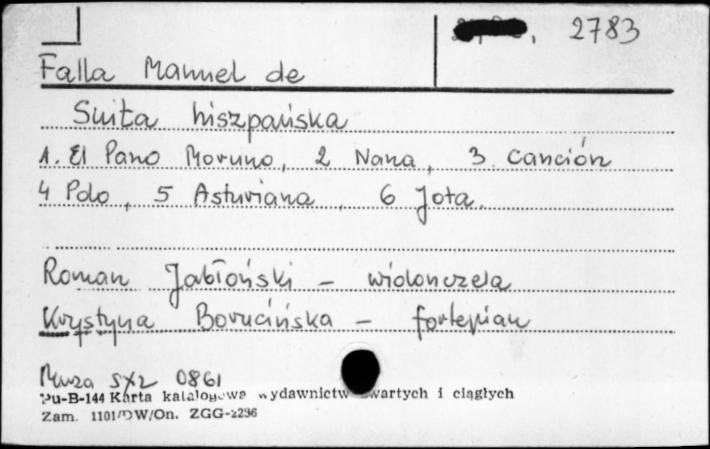 2783
Falla Manuel de
Suita hiszpańska
1. El Pano Moruno, 2 Nana, 3. Canción
4 Polo, 5 Asturiana, 6 Jota.
Roman Jabłoński - wiolonczela
Krystyna Borucińska - fortepian
Muza SXL 0861
Pu-B-144 Karta katalogowa wydawnictw zwartych i ciągłych
Zam. 1101/DW/On. ZGG-2296